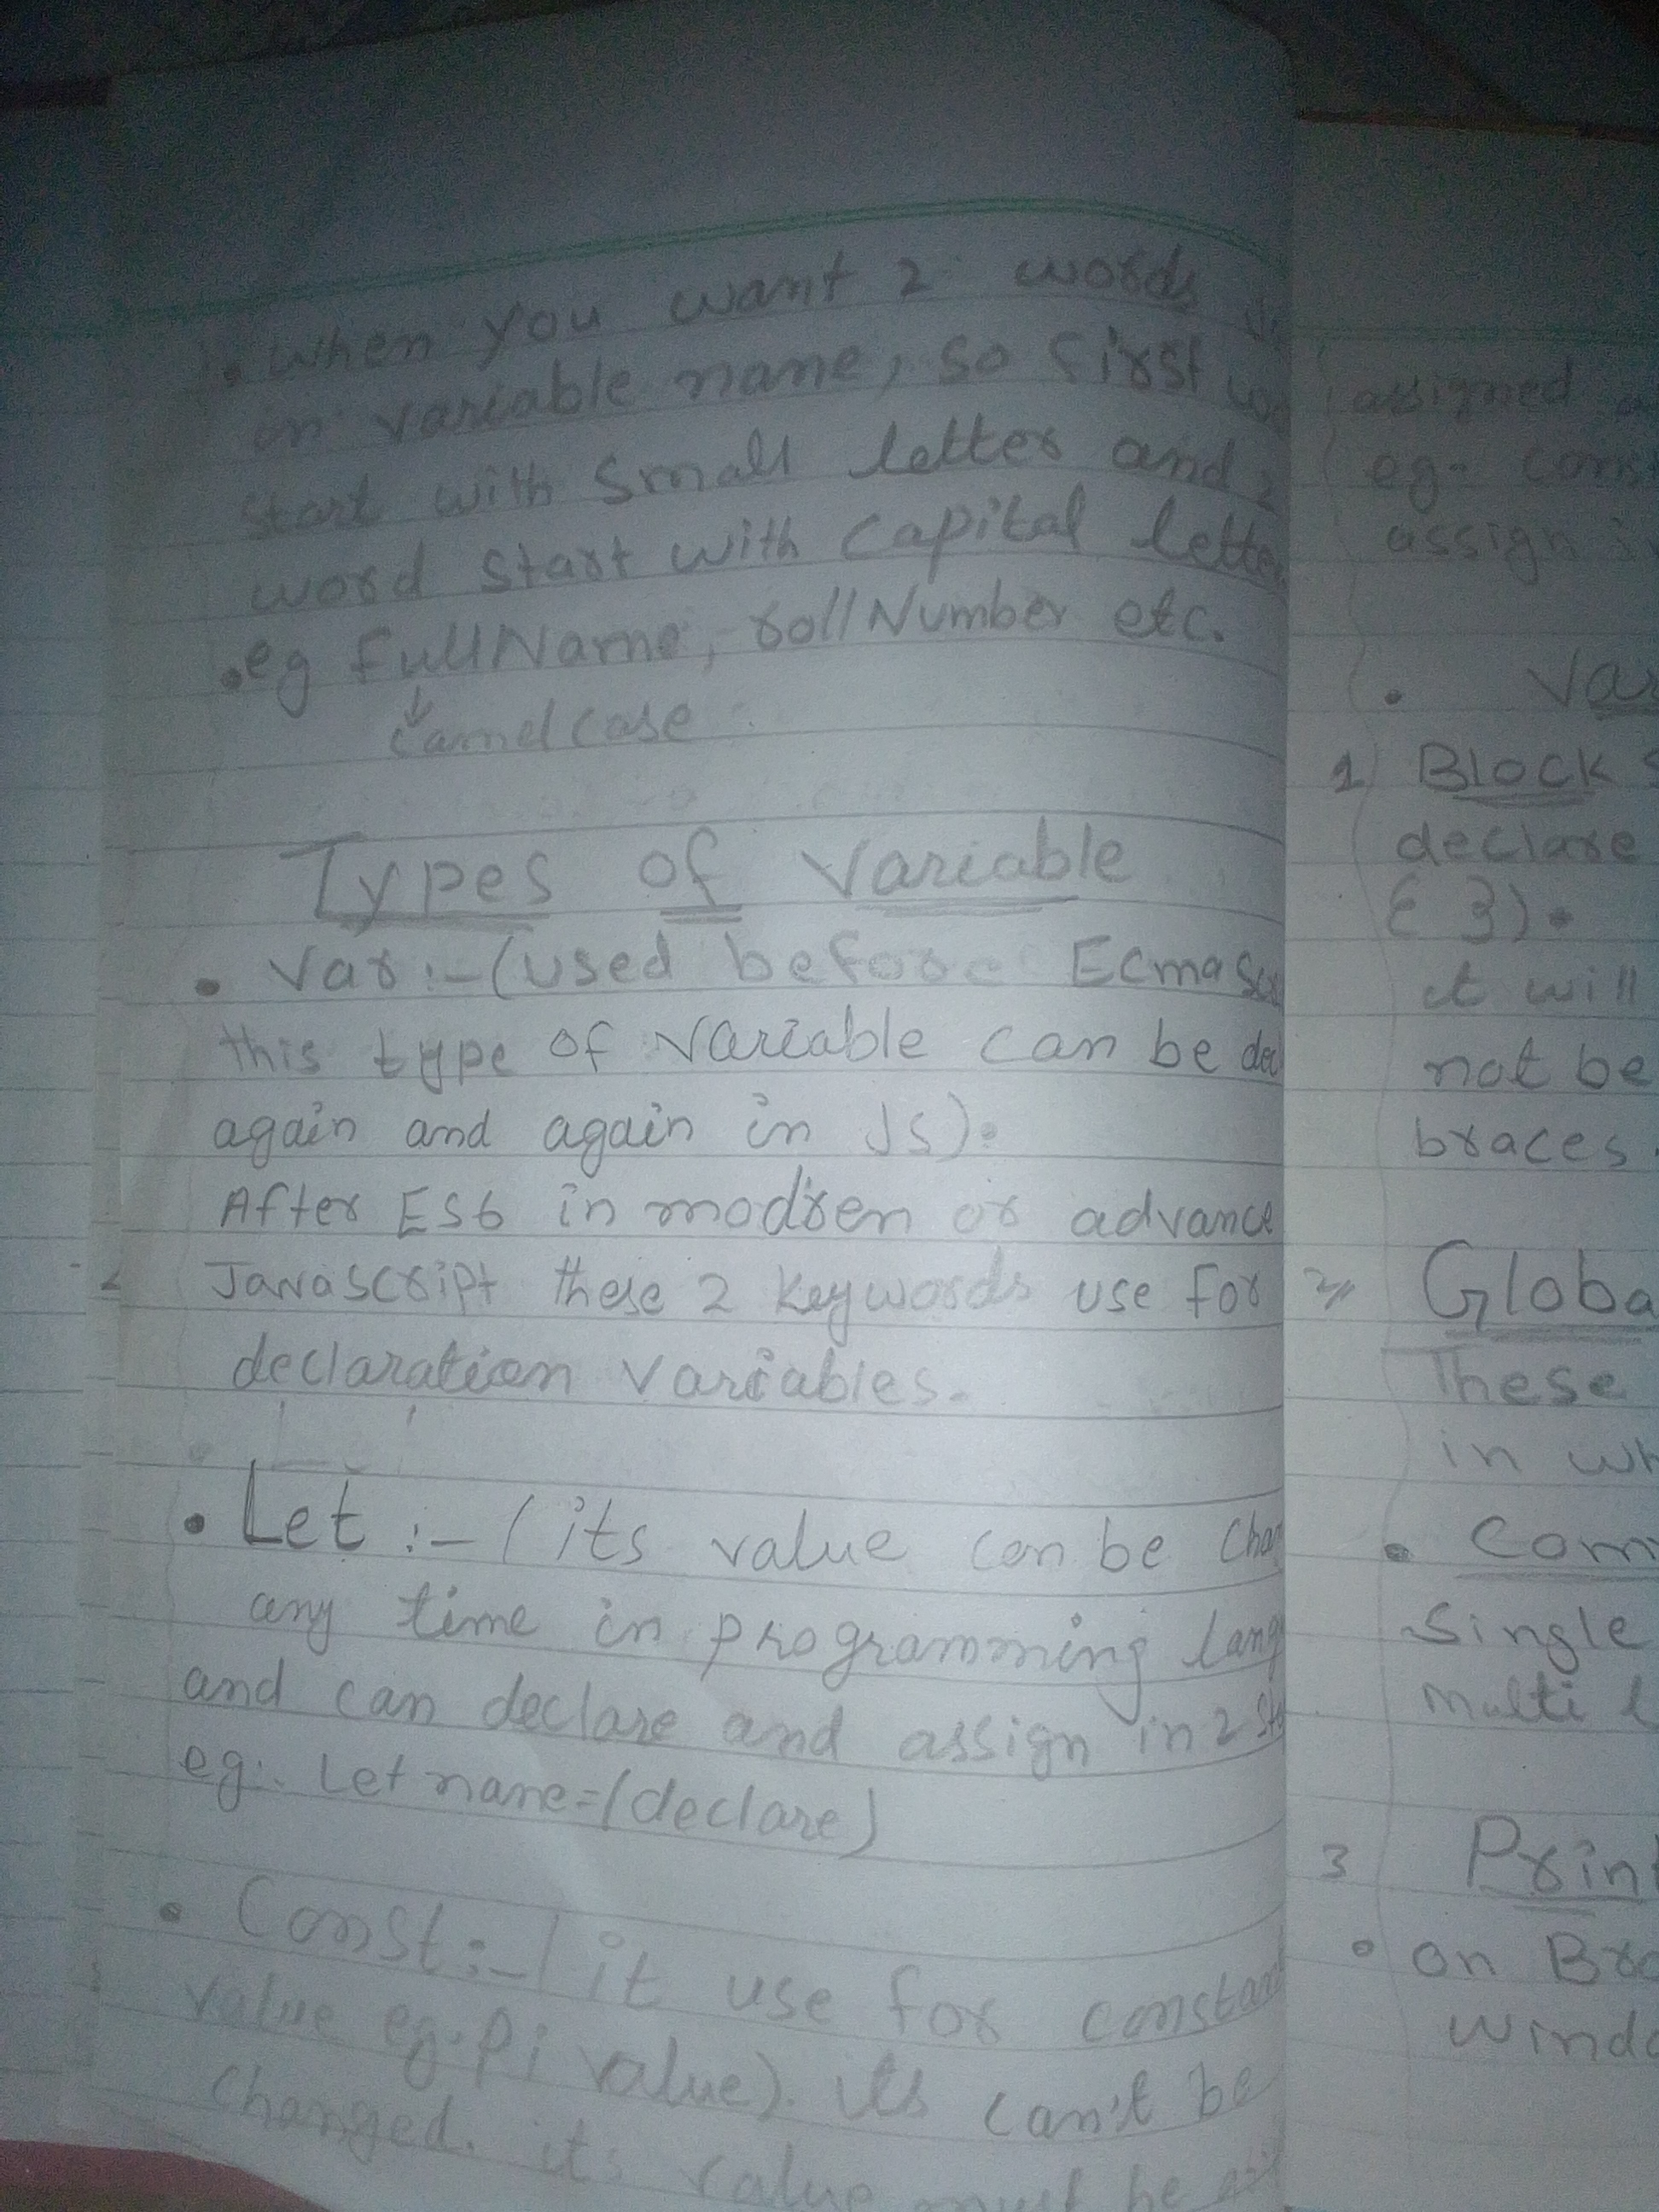 • When you want 2 words
in variable name, so first
start with small letter and 2
word start with capital letter
• eg fullName, rollNumber etc.
camel case
Types of Variable
• Var :- (used before EcmaSc
this type of variable can be dec
again and again in JS).
After ES6 in modren or advance
JavaScript these 2 keywords use for
declaration variables.
• Let :- ( its value can be chan
any time in programming lang
and can declare and assign in 2 st
eg:- Let name=(declare)
• Const :- ( it use for constant
value eg. Pi value). its can't be
changed. its value must be
assigned
eg- cons
assign
• Var
1) Block S
declare
{ }).
it will
not be
braces.
2) Globa
These
in wh
• Com
Single
Multi l
3 Print
• on Bro
windo